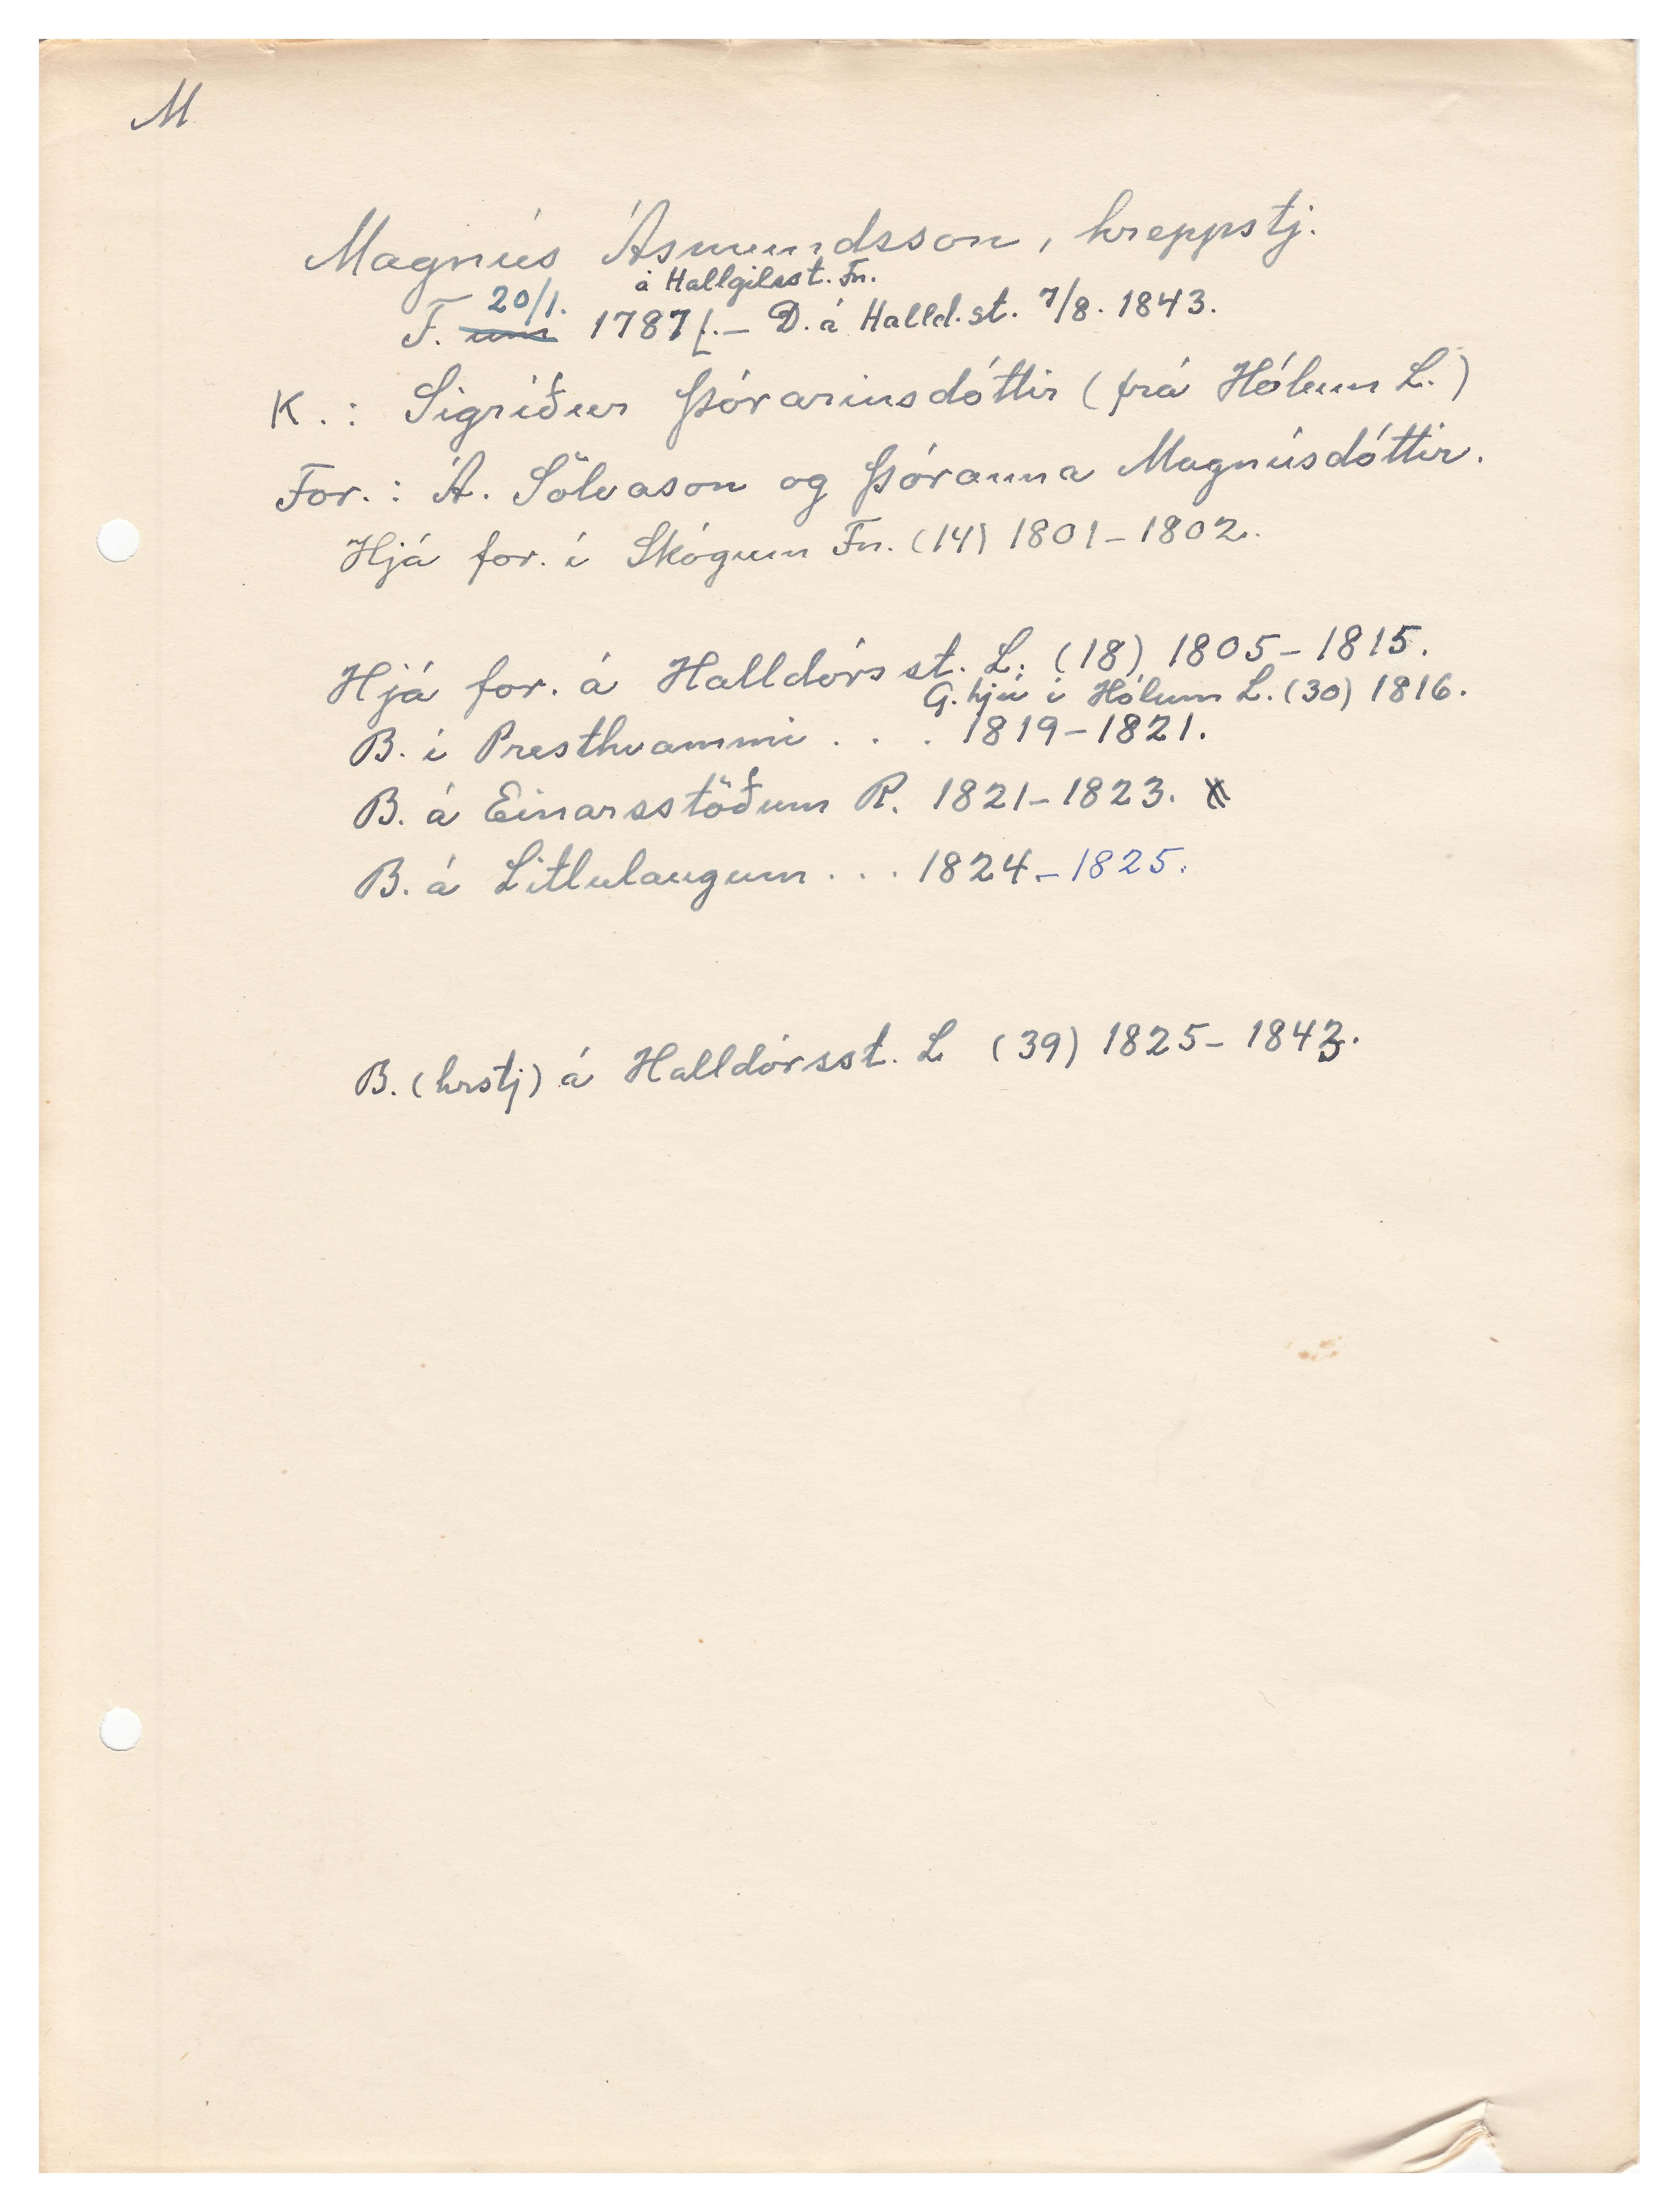 M
Magnús Ásmundsson, hreppstj.
á Hallgilsst. Fn.
F. 20/1. 1787. – D. á Halld.st. 7/8. 1843.
K.: Sigríður Þórarinsdóttir (frá Hólum L.)
For.: Á. Sölvason og Þóranna Magnúsdóttir.
Hjá for. í Skógum Fn. (14) 1801–1802.
Hjá for. á Halldórsst. L. (18) 1805–1815.
G. hjú í Hólum L. (30) 1816.
B. í Presthvammi . . . 1819–1821.
B. á Einarsstöðum R. 1821–1823.
B. á Litlulaugum . . . 1824–1825.
B. (hrstj) á Halldórsst. L (39) 1825–1843.